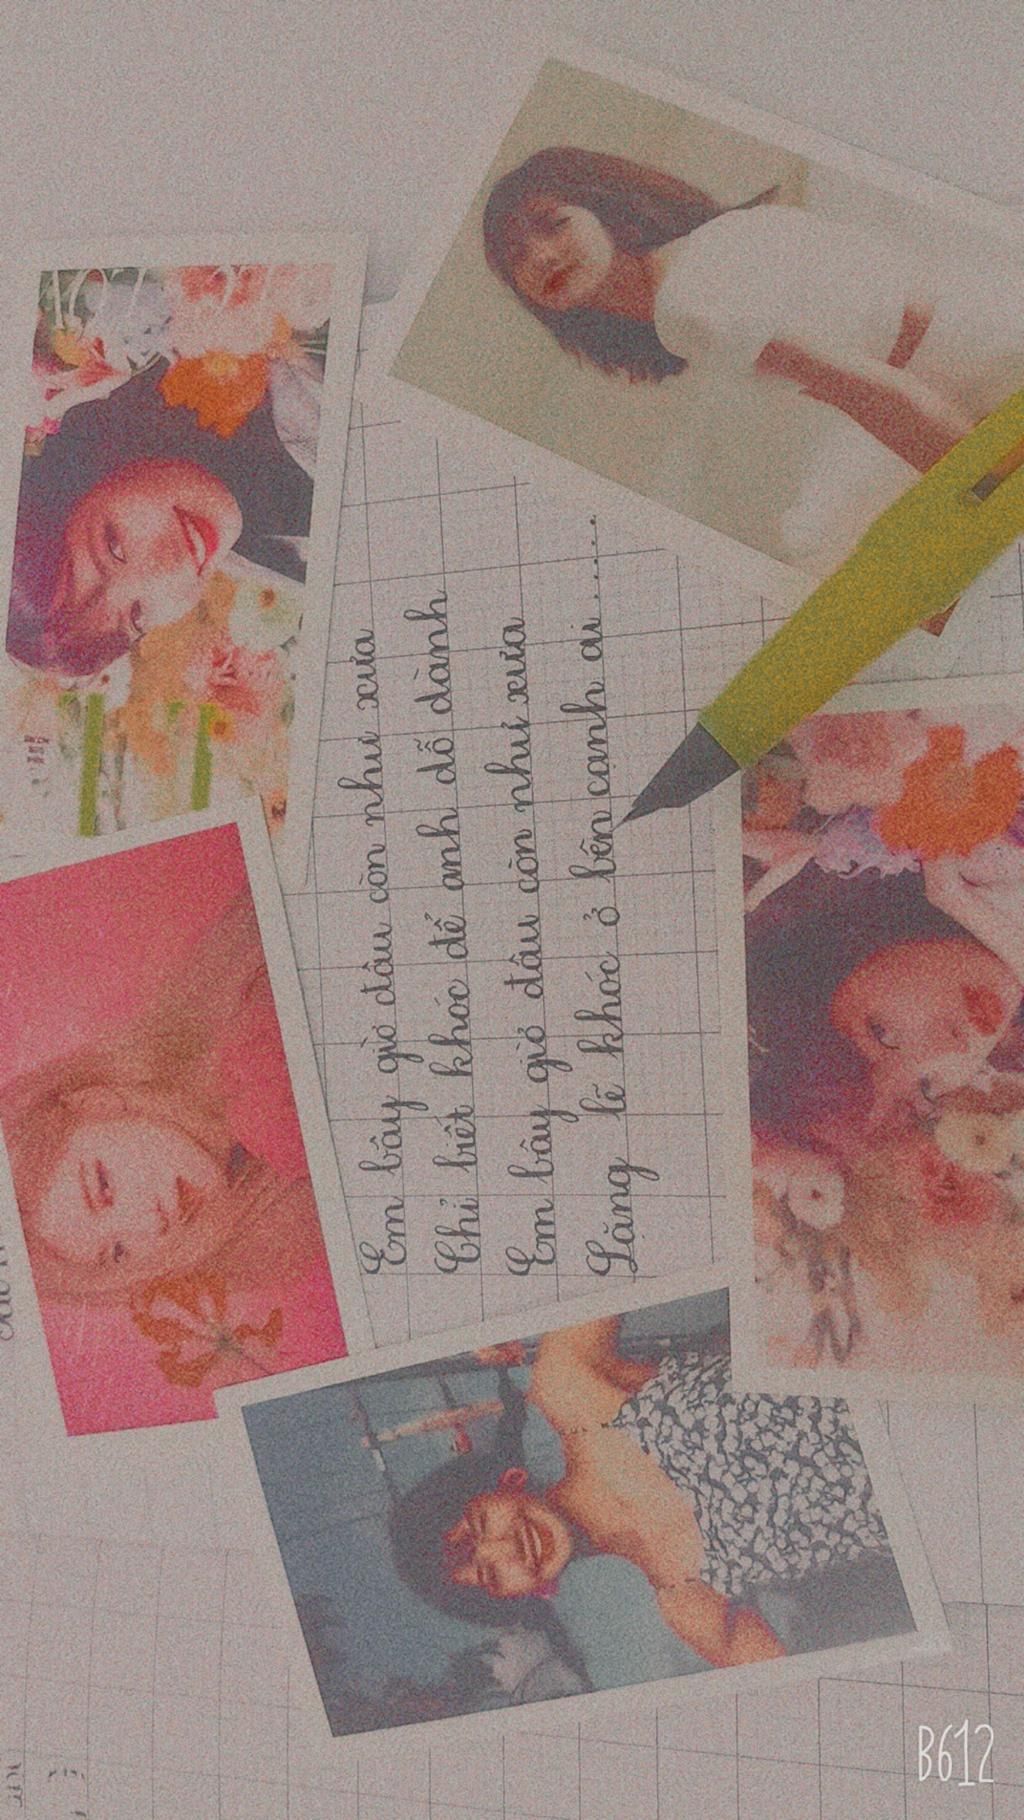 Em bây giờ đâu còn như xưa
Chỉ biết khóc để anh dỗ dành
Em bây giờ đâu còn như xưa
Lặng lẽ khóc ở bên cạnh ai.....
B612